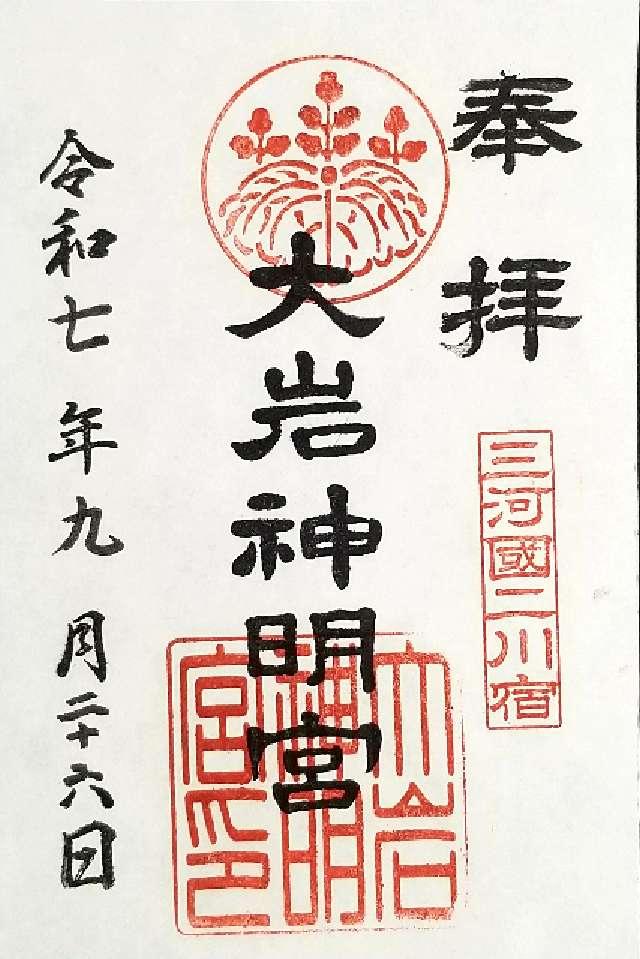 奉拝
三河國二川宿
大岩神明宮
大岩神明宮印
令和七年九月二十六日